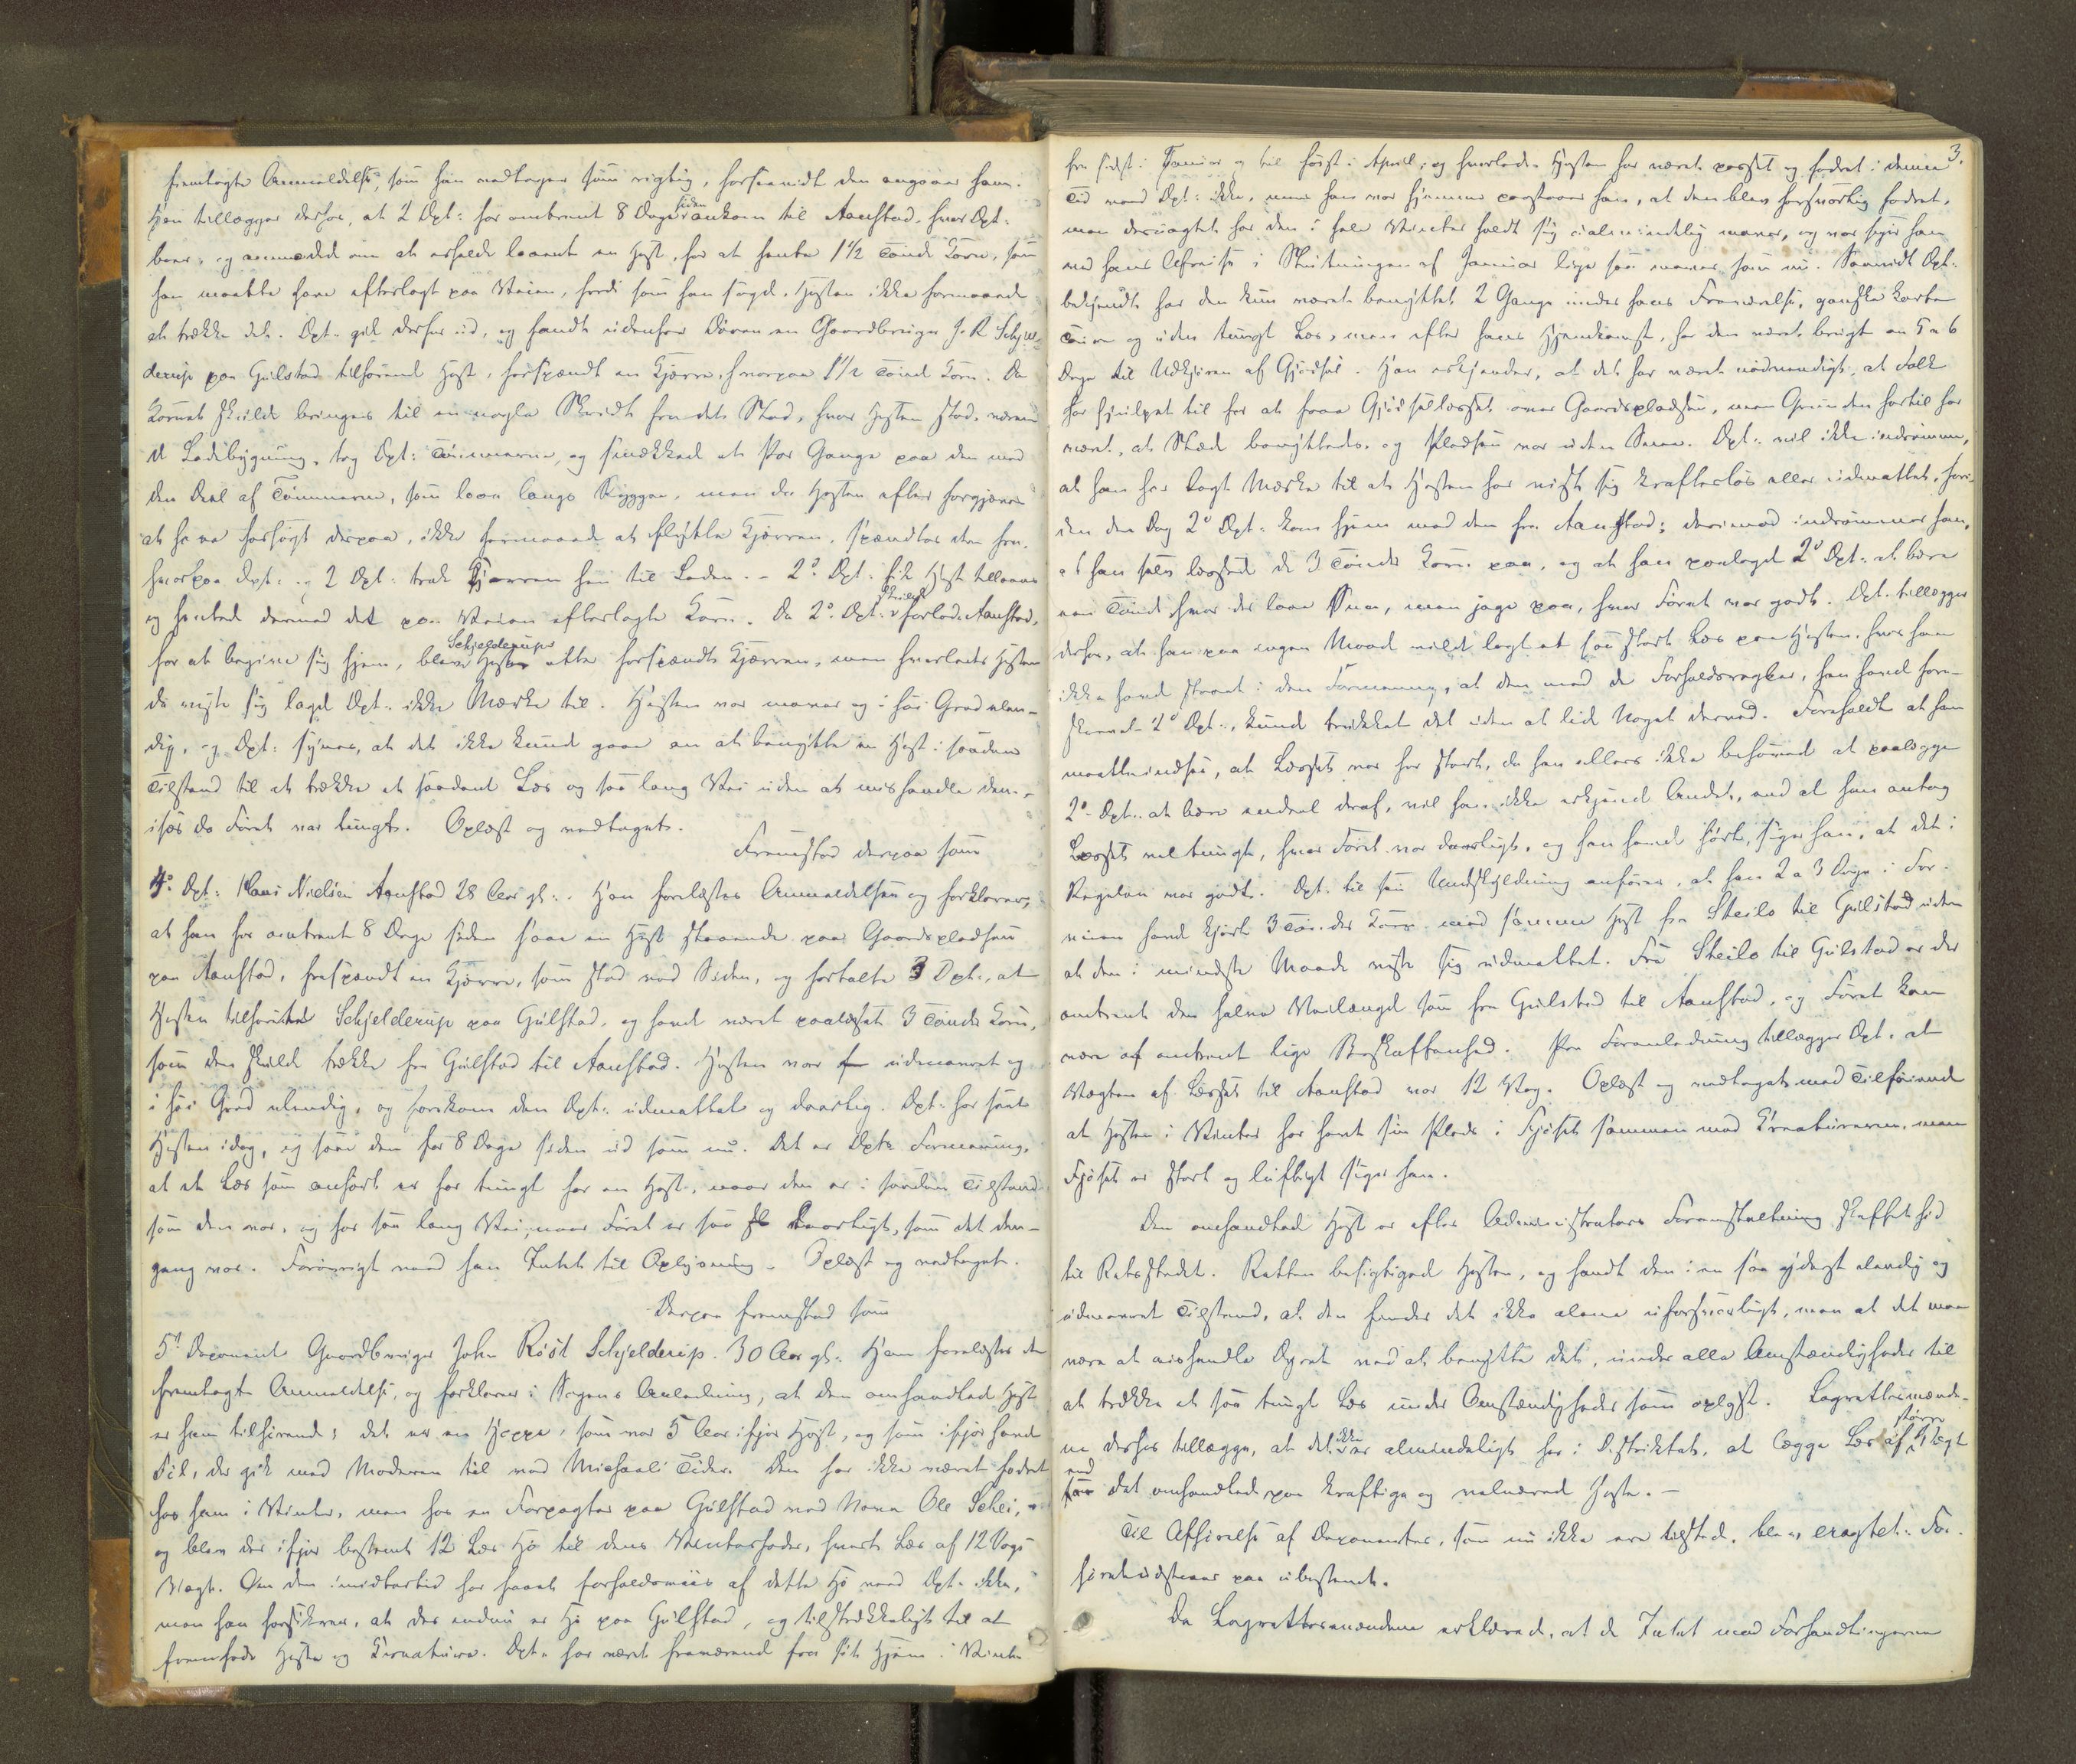 fremlagte Anmeldelse, som han vedtager som rigtig, forsaavidt den angaaer ham.
Han tillægger derhos, at 2 Dpt: for omtrent 8 Dage siden ankom til Aanstad, hvor Dpt:
boer, og anmodede om at erholde laant en Hest, for at hente 1 1/2 Tønde Korn, som
han maatte have efterlagt paa Veien, fordi som han sagde, Hesten ikke formaaede
at trække det. Dpt. gik derfor ud, og fandt udenfor Døren en Gaardbruger J. R. Schjel-
derup paa Gulstad tilhørende Hest, forspændt en Kjærre, hvorpaa 1 1/2 Tønde Korn. Da
Kornet skulde bringes til en nogle Skridt fra det Sted, hvor Hesten stod, værende
Ladebygning, tog Dpt: Tømmerne, og smækkede et Par Gange paa den med
den Deel af Tømmerne, som laae langs Ryggen, men da Hesten efter forgjæves
at have forsøgt derpaa, ikke formaaede at flytte Kjærren, spændtes den fra,
hvorpaa Dpt: og 2 Dpt: trak Kjærren hen til Laden. - 2d Dpt: fik Hest tillaans
og hentede dermed det paa Veien efterlagte Korn. Da 2d Dpt: forlod Aanstad,
for at begive sig hjem, blev Schjelderups Hest atter forspændt Kjærren, men hvorledes Hesten
da viste sig lagde Dpt: ikke Mærke til. Hesten var mager og i høi Grad elen-
dig, og Dpt: synes, at det ikke kunde gaae an at benytte en Hest i saadan
Tilstand til at trække et saadant Læs og saa lang Vei uden at mishandle den,
især da Føret var tungt. Oplæst og vedtaget.
Fremstod derpaa som
4de Dpt: Klaus Nielsen Aanstad 28 Aar gl: Han forelæstes Anmeldelsen og forklarer,
at han for omtrent 8 Dage siden saae en Hest staaende paa Gaardspladsen
paa Aanstad, forspændt en Kjærre, som stod ved Siden, og fortalte 3 Dpt:, at
Hesten tilhørte Schjelderup paa Gulstad, og havde været paalæsset 3 Tønder Korn,
som den skulde trække fra Gulstad til Aanstad. Hesten var udmarvet og
i høi Grad elendig, og forekom den Dpt: udmattet og daarlig. Dpt: har seet
Hesten idag, og saae den for 8 Dage siden ud som nu. Det er Dpts Formening,
at et Læs som anført er for tungt for en Hest, naar den er i saadan Tilstand
som den var, og for saa lang Vei, naar Føret er saa daarligt, som det den-
gang var. Forøvrigt veed han Intet til Oplysning. Oplæst og vedtaget.
Derpaa fremstod som
5te Deponent Gaardbruger John Røst Schjelderup. 30 Aar gl: Ham forelæstes den
fremlagte Anmeldelse, og forklarer i Sagens Anledning, at den omhandlede Hest
er ham tilhørende; det er en Hoppe, som var 5 Aar ifjor Høst, og som ifjor havde
Føl, der gik med Moderen til ved Michaeli Tider. Den har ikke været fodret
hos ham i Vinter, men hos en Forpagter paa Gulstad ved Navn Ole Schei,
og blev der ifjor bestemt 12 Læs Hø til dens Vinterfoder, hvert Læs af 12 Vogs
Vægt. Om den imidlertid har faaet forholdsmæs af dette Hø veed Dpt. ikke,
men han forsikrer, at der endnu er Hø paa Gulstad, og tilstrækkeligt til at
fremføde Heste og Kreature. Dpt. har været fraværende fra sit Hjem i Vinter
3.
fra sidst i Januar og til først i April, og hvorledes Hesten har været passet og fodret i denne
Tid veed Dpt: ikke, men han var hjemme paastaaer han, at den blev forsvarlig fodret,
men desuagtet har den i hele Vinter holdt sig ualmindelig mager, og var siger han
ved hans Afreise i Slutningen af Januar lige saa mager som nu. Saavidt Dpt.
bekjendt har den kun været benyttet 2 Gange under hans Fraværelse, ganske korte
Toure og uden tungt Læs, men efter hans Hjemkomst, har den været brugt en 5 a 6
Dage til Udkjøren af Gjødsel. Han erkjender, at det har været nødvendigt, at Folk
har hjulpet til for at faae Gjødsellæsset over Gaardspladsen, men Grunden hertil har
været, at Slæde benyttedes og Pladsen var uden Snee. Dpt: vil ikke indrømme,
at han har lagt Mærke til at Hesten har viist sig kraftesløs eller udmattet, før-
den den Dag 2d Dpt: kom hjem med den fra Aanstad; derimod indrømmer han,
at han selv læssede de 3 Tønder Korn paa, og at han paalagde 2d Dpt: at bære
een Tønde hvor der laae Snee, men jage paa, hvor Føret var godt. Dpt. tillægger
derhos, at han paa ingen Maade vilde lagt et saa stort Læs paa Hesten, hvis han
ikke havde staaet i den Formening, at den med de Forholdsregler, han havde fore-
skrevet 2d Dpt:, kunde trukket det uden at lide Noget derved. Foreholdt at han
maatte indsee, at Læsset var for stort, da han ellers ikke behøvede at paalægge
2d Dpt: at bære endeel deraf, vil han ikke erkjende Andet, end at han antog
Læsset vel tungt, hvor Føret var daarligt, og han havde hørt, siger han, at det i
Regelen var godt. Dpt. til sin Undskyldning anfører, at han 2 a 3 Dage i For-
veien havde kjørt 3 Tønder Korn med samme Hest fra Steilo til Gulstad uden
at den i mindste Maade viste sig udmattet. Fra Steilo til Gulstad er der
omtrent den halve Veilængde som fra Gulstad til Aanstad, og Føret kan
være af omtrent lige Beskaffenhed. Paa Foranledning tillægger Dpt. at
Vægten af Læsset til Aanstad var 12 Vog. Oplæst og vedtaget med Tilføiende
at Hesten i Vinter har havt sin Plads i Fjøset sammen med Creaturerne, men
Fjøset er stort og luftigt siger han.
Den omhandlede Hest er efter Administrators Foranstaltning skaffet hid
til Retsstedet. Retten besigtigede Hesten, og fandt den i en saa yderst elendig og
udmarvet Tilstand, at den finder det ikke alene uforsvarligt, men at det maa
være at mishandle Dyret ved at benytte det, under alle Omstændigheder til
at trække et saa tungt Læs under Omstændigheder som oplyst. Lagrettesmænde-
ne derhos tillægge, at det ikke er almindeligt her i Distriktet, at lægge Læs af større Vægt
end det omhandlede paa kraftige og velnærede Heste. -
Til Afhørelse af Deponenter, som nu ikke ere tilstede, blev eragtet: For-
høret udstaaer paa ubestemt.
Da Lagrettesmændene erklærede, at de Intet med Forhandlingerne